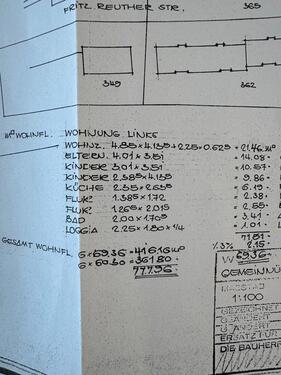 FRITZ. REUTHER STR.
365
349
362
m² WOHNFL. WOHNUNG LINKS
WOHNZ. 4.85 x 4.135 + 2.25 x 0.625 = 21.46 m²
ELTERN. 4.01 x 3.51 = 14.08
KINDER 3.01 x 3.51 = 10.57
KINDER 2.385 x 4.135 = 9.86
KÜCHE 2.35 x 2.635 = 6.19
FLUR 1.385 x 1.72 = 2.38
FLUR 1.265 x 2.015 = 2.55
BAD 2.00 x 1.705 = 3.41
LOGGIA 2.25 x 1.80 x 1/4 = 1.01
71.51
% 3% 2.15
69.36
GESAMT WOHNFL. 6 x 69.36 = 416.16 m²
6 x 60.30 = 361.80
777.96
W
GEMEINNÜ
MASSTAB
1:100
GEZEICHNET
GEÄNDERT
GEÄNDERT
ERSATZ FÜR
DIE BAUHERR